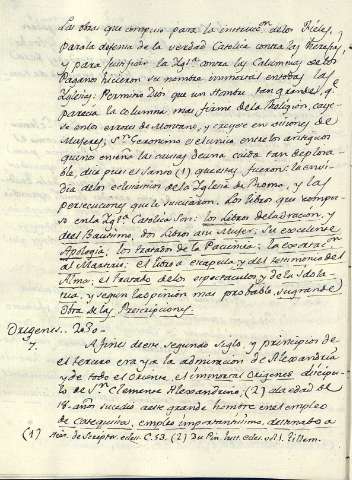 Las obras que compuso para la instrucc.on de los Fieles,
para la defensa de la verdad Catolica contra los Herejes,
y para justificar la Igl.a contra las Calumnias de los
Paganos hicieron su nombre inmortal en todas las
Iglesias: Permitio Dios que un Hombre tan grande, q.e
parecia la columna mas firme de la Religion, caye-
se en los errores de Montano, y creyese en visiones de
Mujeres; S.n Geronimo es el unico entre los antiguos
que nos enseña las causas de una caida tan deplora-
ble, dice pues el Santo (1) que estas fueron: la envi-
dia de los eclesiasticos de la Iglesia de Roma, y las
persecuciones que le suscitaron. Los libros que compu-
so en la Igl.a Catolica son: los Libros de la Oracion, y
del Bautismo, dos Libros a su Muger, su excelente
Apologia; los tratados de la Paciencia; la exortac.on
al Martirio, el libro a Escapula y del testimonio del
Alma; el tratado de los espectaculos y de la Idola-
tria, y segun la opinion mas probable, su grande
Obra de las Prescripciones.
Origenes. 230
7. A fines de este segundo Siglo y principios de
el tercero era ya la admiracion de Alexandria
y de todo el Oriente, el inmortal Origenes discipu-
lo de S.n Clemente Alexandrino, (2) a la edad de
18 años sucedio a este grande hombre en el empleo
de Catequista, empleo importantisimo, destinado a
(1) de Scriptor. eccles. C. 53. (2) Du Pin eccles. Tillem.